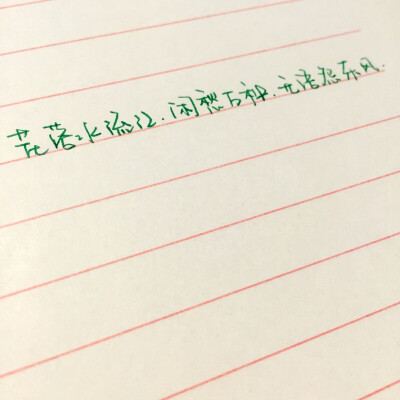 花落水流红.闲愁万种.无语怨东风.